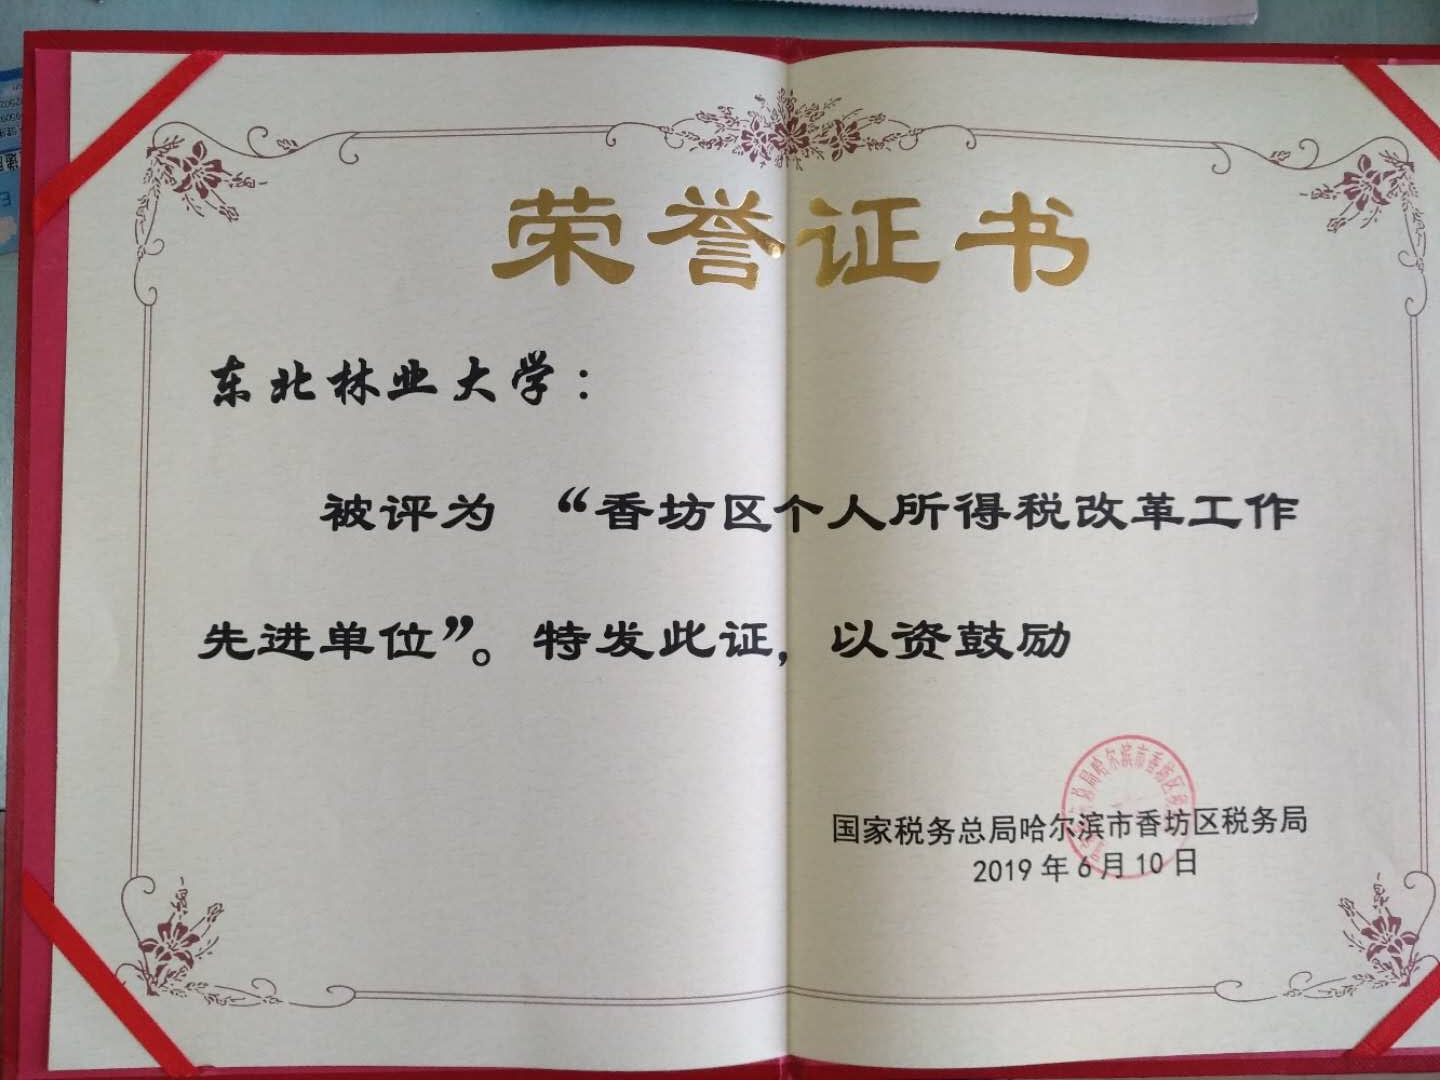 荣誉证书
东北林业大学：
被评为 “香坊区个人所得税改革工作
先进单位”。特发此证，以资鼓励
国家税务总局哈尔滨市香坊区税务局
2019 年 6 月 10 日